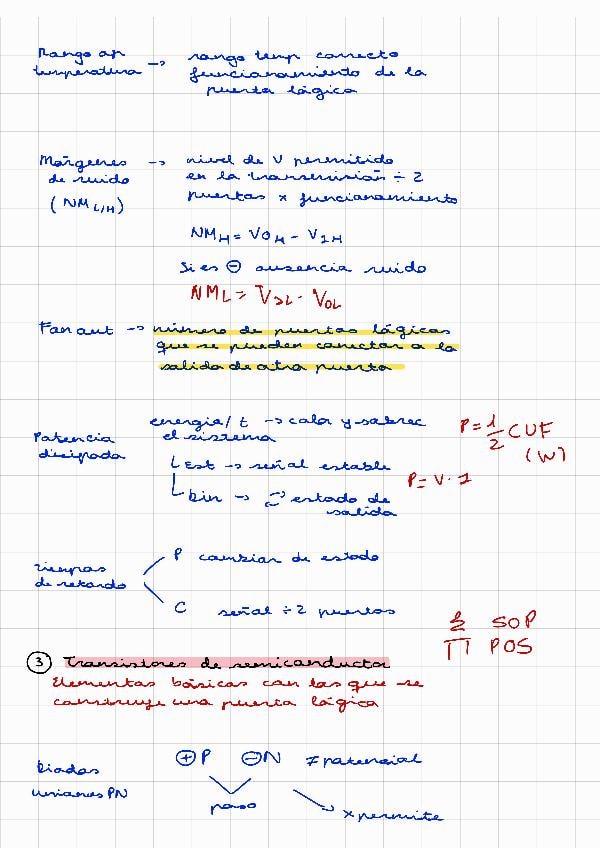 Rango op → rango temp correcto
temperatura funcionamiento de la
puerta lógica
Márgenes → nivel de V permitido
de ruido en la transmisión ÷ 2
(NM L/H) puertas x funcionamiento
NMH = VOH - VIH
Si es ⊖ ausencia ruido
NML = VIL - VOL
Fan out → número de puertas lógicas
que se pueden conectar a la
salida de otra puerta
energía/t → calor y sobrec
Potencia el sistema
disipada
Est → señal estable
Din → estado de
salida
P = 1/2 CUF
(W)
P = V · I
Tiempos
de retardo
P cambiar de estado
C señal ÷ 2 puertos
Σ SOP
∏ POS
③ Transistores de semiconductor
Elementos básicos con los que se
construye una puerta lógica
Diodos ⊕P ⊖N ≠ potencial
uniones PN
paso
x permite